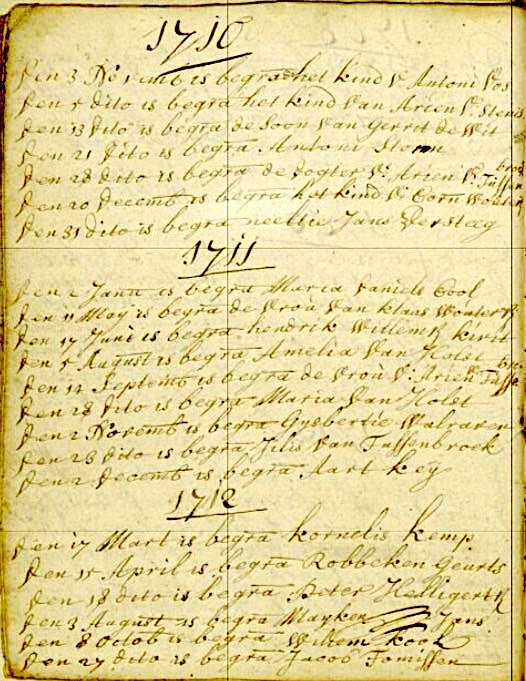 1710
Den 3 Novemb is begra het kind Vn Antoni Vos
Den 5 dito is begra het kind Van Arien Vn
Den 13 dito is begra de Soon Van Gerrit de Wit
Den 21 dito is begra Antoni
Den 28 dito is begra de dogter Vn Arien Vn Tussen
broe
Den 20 Decemb is begra het kind Vn Corn Wouter
Den 31 dito is begra neeltie Jans Versteeg
1711
Den 2 Janu is begra Maria Daniels Cool
Den 11 May is begra de Vrou Van klaas Wouters
Den 17 Juni is begra hendrik Willems
Den 5 August is begra Amelia Van Holst
Den 14 Septemb is begra de Vrou Vn Arien Vn Tusse
Den 28 dito is begra Maria Van Holst
Den 2 Novemb is begra Gysbertie Walraven
Den 26 dito is begra Jilis Van Tussenbroek
Den 2 Decemb is begra Aart key
1712
Den 17 Mart is begra kornelis kemp
Den 15 April is begra Robbeken Geurts
Den 18 dito is begra Peter
Den 3 August is begra Mayken Jans
Den 8 Octob is begra Willem kool
Den 27 dito is begra Jacob Tomissen